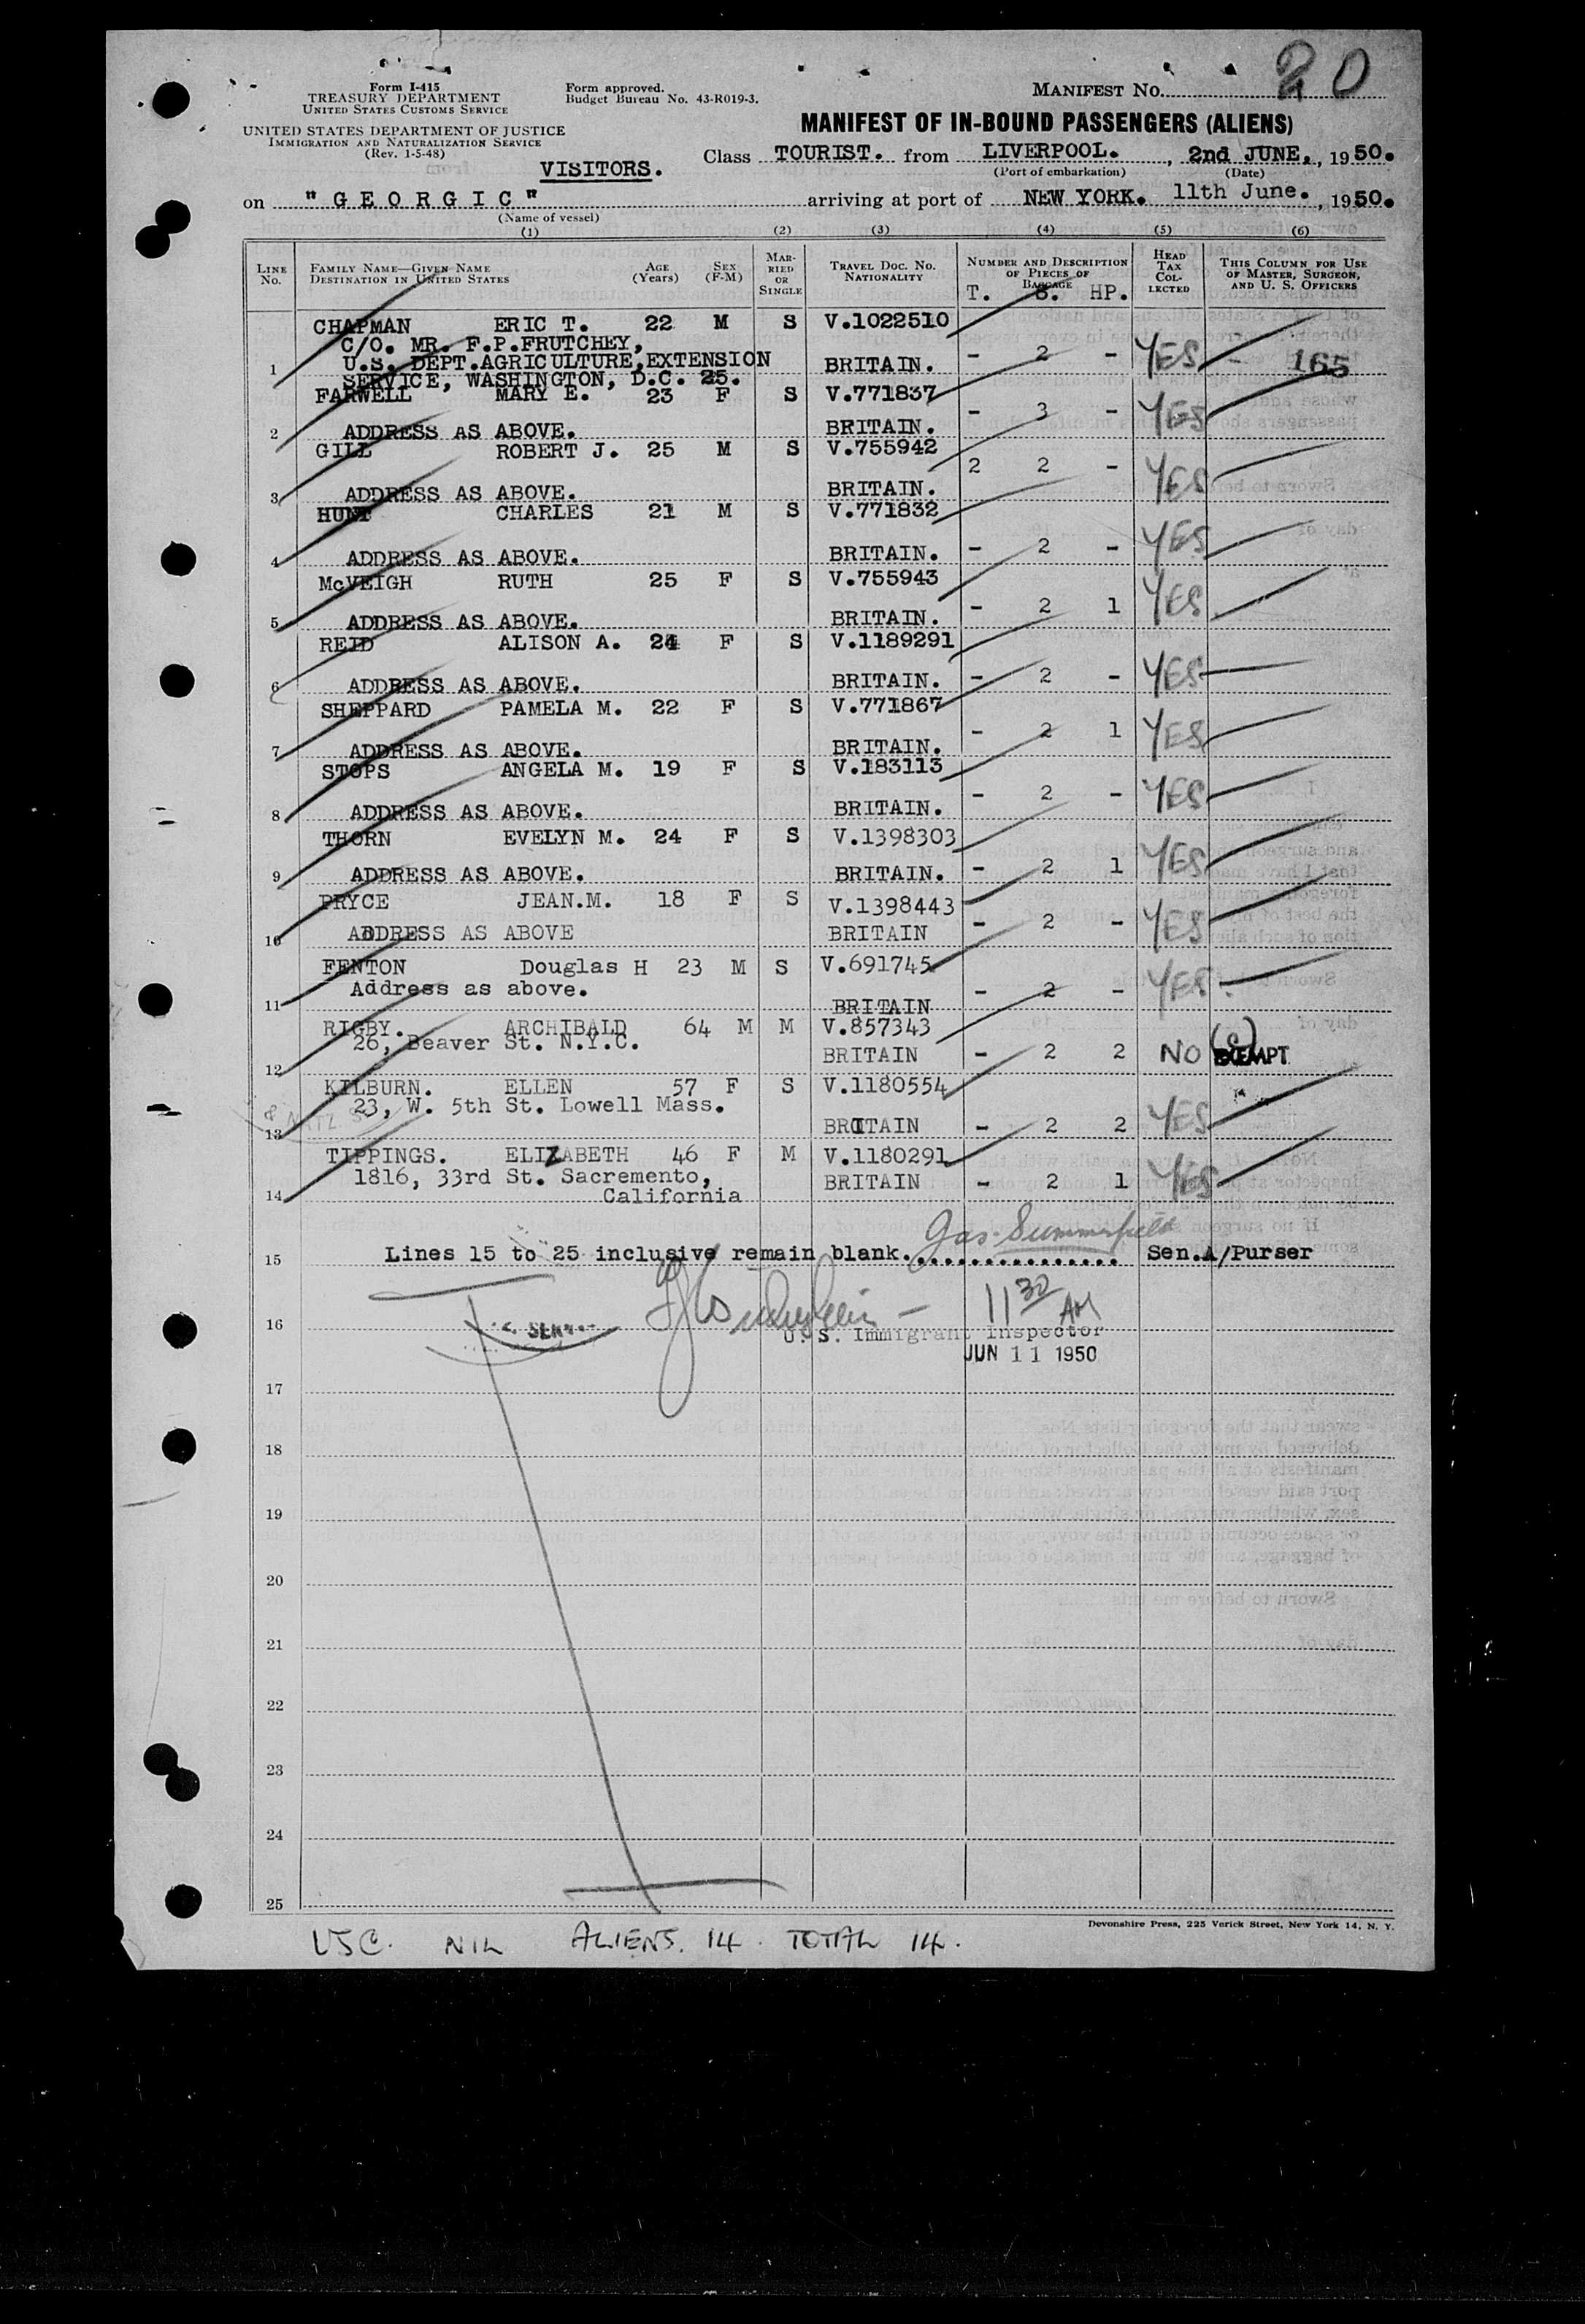 20
Form I-415
TREASURY DEPARTMENT
UNITED STATES CUSTOMS SERVICE
UNITED STATES DEPARTMENT OF JUSTICE
IMMIGRATION AND NATURALIZATION SERVICE
(Rev. 1-5-48)
Form approved.
Budget Bureau No. 43-R019-3.
MANIFEST NO.
MANIFEST OF IN-BOUND PASSENGERS (ALIENS)
VISITORS.
Class TOURIST. from LIVERPOOL. , 2nd JUNE, , 1950.
(Port of embarkation) (Date)
on "GEORGIC" arriving at port of NEW YORK. 11th June. , 1950.
(Name of vessel)
(1) (2) (3) (4) (5) (6)
LINE NO. FAMILY NAME—GIVEN NAME DESTINATION IN UNITED STATES AGE (Years) SEX (F-M) MARRIED OR SINGLE TRAVEL DOC. NO. NATIONALITY NUMBER AND DESCRIPTION OF PIECES OF BAGGAGE HEAD TAX COLLECTED THIS COLUMN FOR USE OF MASTER, SURGEON, AND U. S. OFFICERS
T. B. HP.
CHAPMAN ERIC T. 22 M S V.1022510
C/O. MR. F.P.FRUTCHEY,
1 U.S. DEPT.AGRICULTURE,EXTENSION BRITAIN. - 2 - YES - 165
SERVICE, WASHINGTON, D.C. 25.
FARWELL MARY E. 23 F S V.771837
2 ADDRESS AS ABOVE. BRITAIN. - 3 - YES
GILL ROBERT J. 25 M S V.755942
3 ADDRESS AS ABOVE. BRITAIN. 2 2 - YES
HUNT CHARLES 21 M S V.771832
4 ADDRESS AS ABOVE. BRITAIN. - 2 - YES
McVEIGH RUTH 25 F S V.755943
5 ADDRESS AS ABOVE. BRITAIN. - 2 1 YES
REID ALISON A. 24 F S V.1189291
6 ADDRESS AS ABOVE. BRITAIN. - 2 - YES
SHEPPARD PAMELA M. 22 F S V.771867
7 ADDRESS AS ABOVE. BRITAIN. - 2 1 YES
STOPS ANGELA M. 19 F S V.183113
8 ADDRESS AS ABOVE. BRITAIN. - 2 - YES
THORN EVELYN M. 24 F S V.1398303
9 ADDRESS AS ABOVE. BRITAIN. - 2 1 YES
PRYCE JEAN.M. 18 F S V.1398443
10 ADDRESS AS ABOVE BRITAIN - 2 - YES
FENTON Douglas H 23 M S V.691745
Address as above.
11 BRITAIN - 2 - YES
RIGBY. ARCHIBALD 64 M M V.857343
26, Beaver St. N.Y.C.
12 BRITAIN - 2 2 NO EXEMPT
KILBURN. ELLEN 57 F S V.1180554
23, W. 5th St. Lowell Mass.
13 BRITAIN - 2 2 YES
TIPPINGS. ELIZABETH 46 F M V.1180291
1816, 33rd St. Sacremento, BRITAIN - 2 1 YES
14 California
15 Lines 15 to 25 inclusive remain blank. Jas. Summerfield Sen.A/Purser
16 11 30 AM
U. S. Immigrant Inspector
JUN 11 1950
17
18
19
20
21
22
23
24
25
Devonshire Press, 225 Varick Street, New York 14, N. Y.
USC. NIL ALIENS. 14. TOTAL 14.